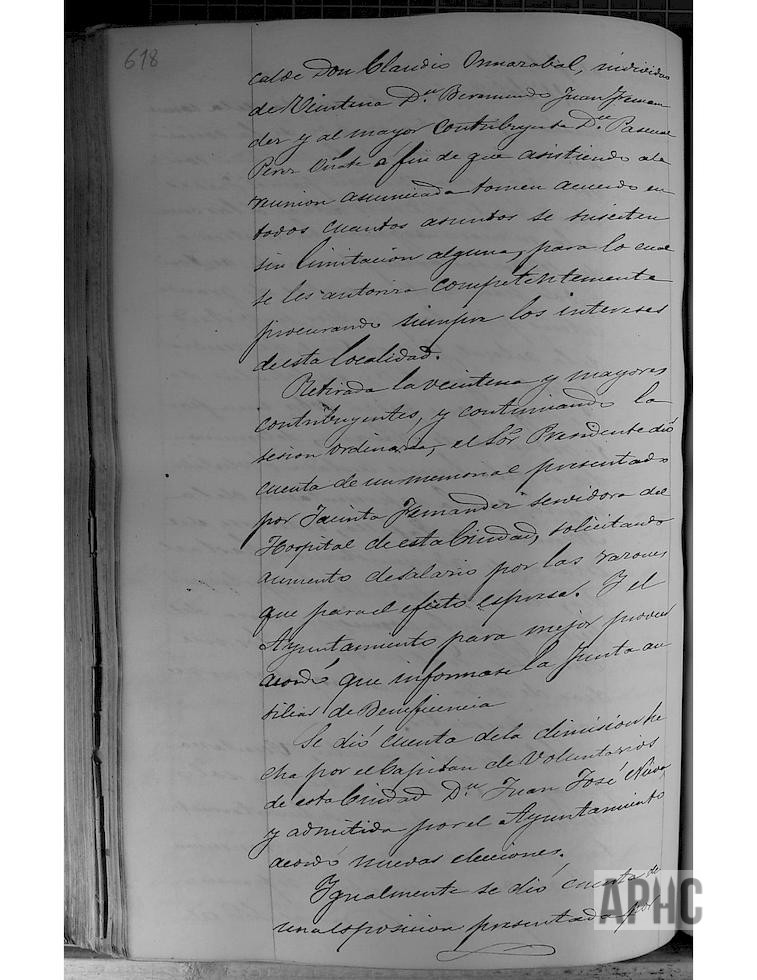 618
calde Don Claudio Inmarabal, individuo
de Veintena Dn Beremundo Juan Fernan
dez y al mayor contribuyente Dn Pascual
Perez Oñate a fin de que asistiendo ala
reunion anunciada tomen acuerdo en
todos cuantos asuntos se susciten
sin limitacion alguna, para lo cual
se les autoriza competentemente
procurando siempre los intereses
de esta localidad.
Retirada la veintena y mayores
contribuyentes, y continuando la
sesion ordinaria, el Sor Presidente dió
cuenta de un memorial presentado
por Jacinta Fernandez servidora del
Hospital de esta Ciudad, solicitando
aumento de salario por las razones
que para el efecto espresa. Y el
Ayuntamiento para mejor proveer
acordó que informase la Junta au
siliar de Beneficencia
Se dió cuenta dela dimision he
cha por el Capitan de Voluntarios
de esta Ciudad Dn Juan José
y admitida por el Ayuntamiento
acordó nuevas elecciones.
Igualmente se dió cuenta de
una esposicion presentada por
APHC